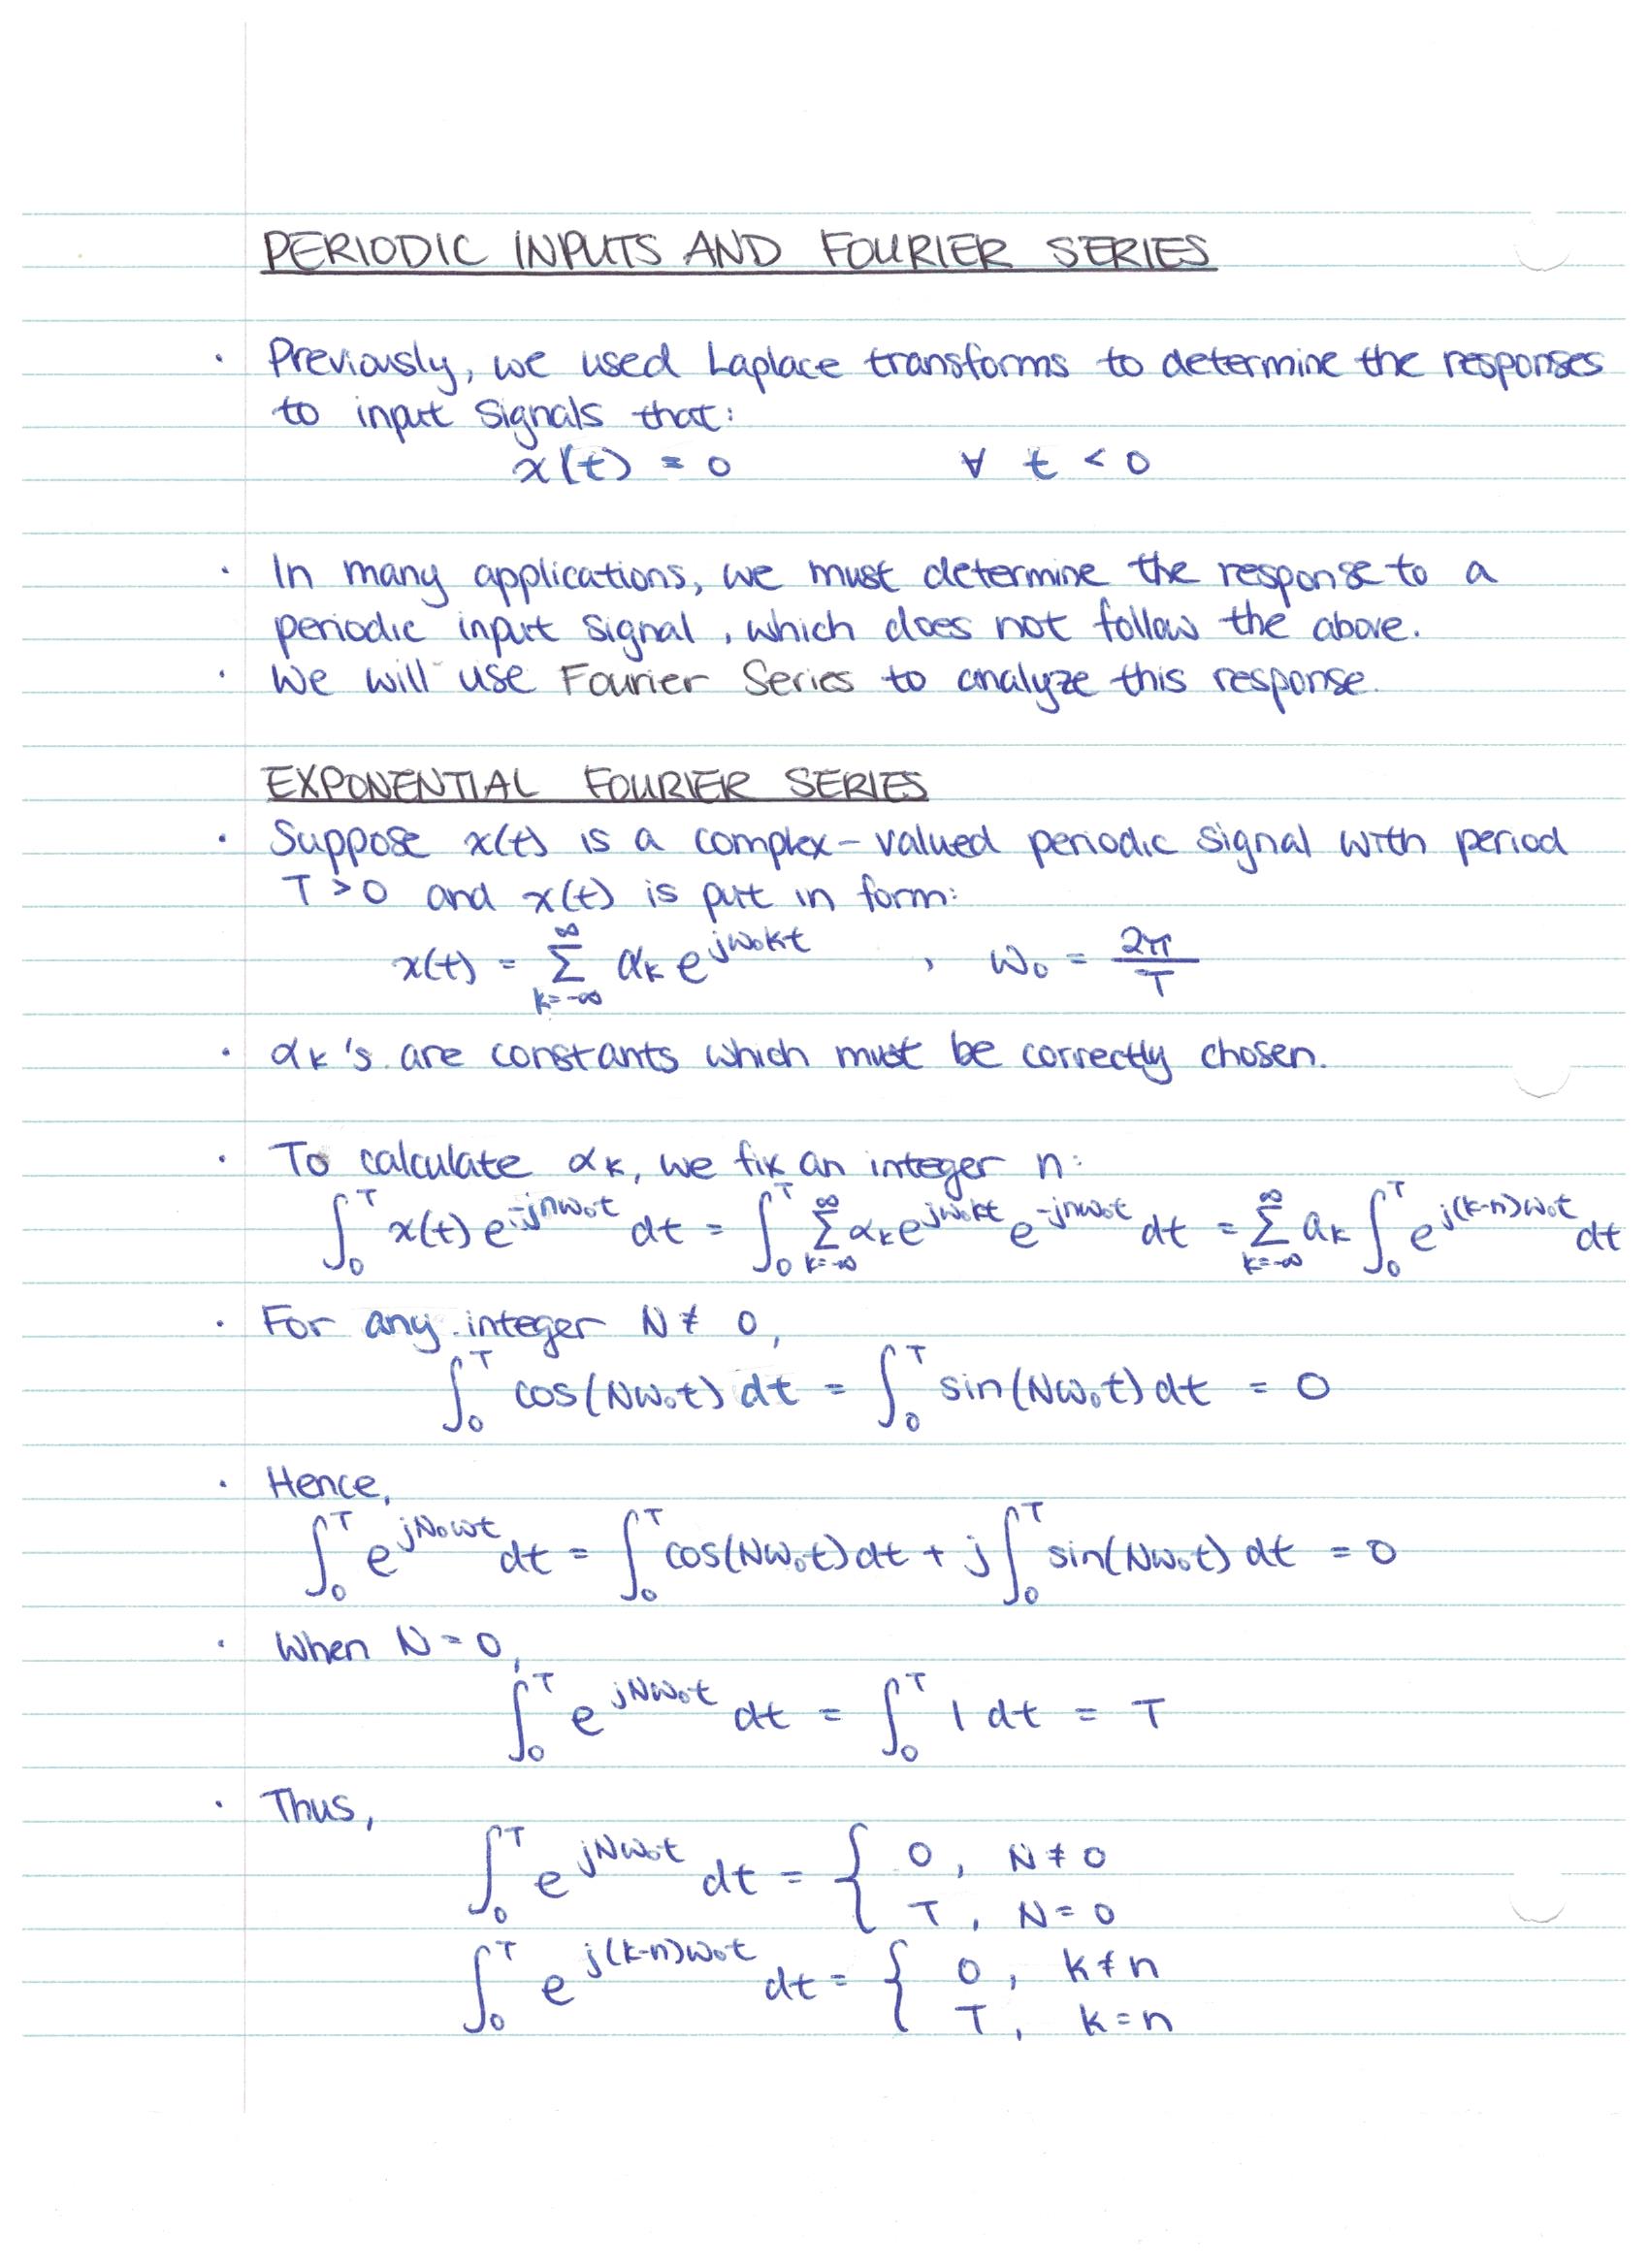 PERIODIC INPUTS AND FOURIER SERIES
· Previously, we used Laplace transforms to determine the responses
to input signals that:
x(t) = 0 ∀ t < 0
· In many applications, we must determine the response to a
periodic input signal, which does not follow the above.
· We will use Fourier Series to analyze this response.
EXPONENTIAL FOURIER SERIES
· Suppose x(t) is a complex-valued periodic signal with period
T > 0 and x(t) is put in form:
x(t) = ∑_{k=-∞}^{∞} α_k e^{jω₀kt} , ω₀ = 2π/T
· α_k's are constants which must be correctly chosen.
· To calculate α_k, we fix an integer n:
∫_0^T x(t) e^{-jnω₀t} dt = ∫_0^T ∑_{k=-∞}^{∞} α_k e^{jω₀kt} e^{-jnω₀t} dt = ∑_{k=-∞}^{∞} a_k ∫_0^T e^{j(k-n)ω₀t} dt
· For any integer N ≠ 0,
∫_0^T cos(Nω₀t) dt = ∫_0^T sin(Nω₀t) dt = 0
· Hence,
∫_0^T e^{jN₀ωt} dt = ∫_0^T cos(Nω₀t) dt + j ∫_0^T sin(Nω₀t) dt = 0
· When N = 0,
∫_0^T e^{jNω₀t} dt = ∫_0^T 1 dt = T
· Thus,
∫_0^T e^{jNω₀t} dt = { 0, N ≠ 0
T, N = 0
∫_0^T e^{j(k-n)ω₀t} dt = { 0, k ≠ n
T, k = n